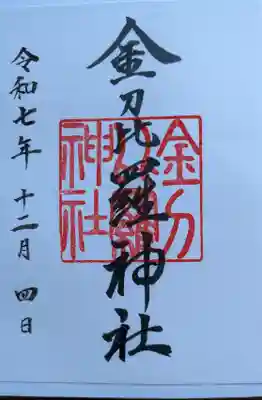 金刀比羅神社
金刀
比羅
神社
令和七年 十二月 四日